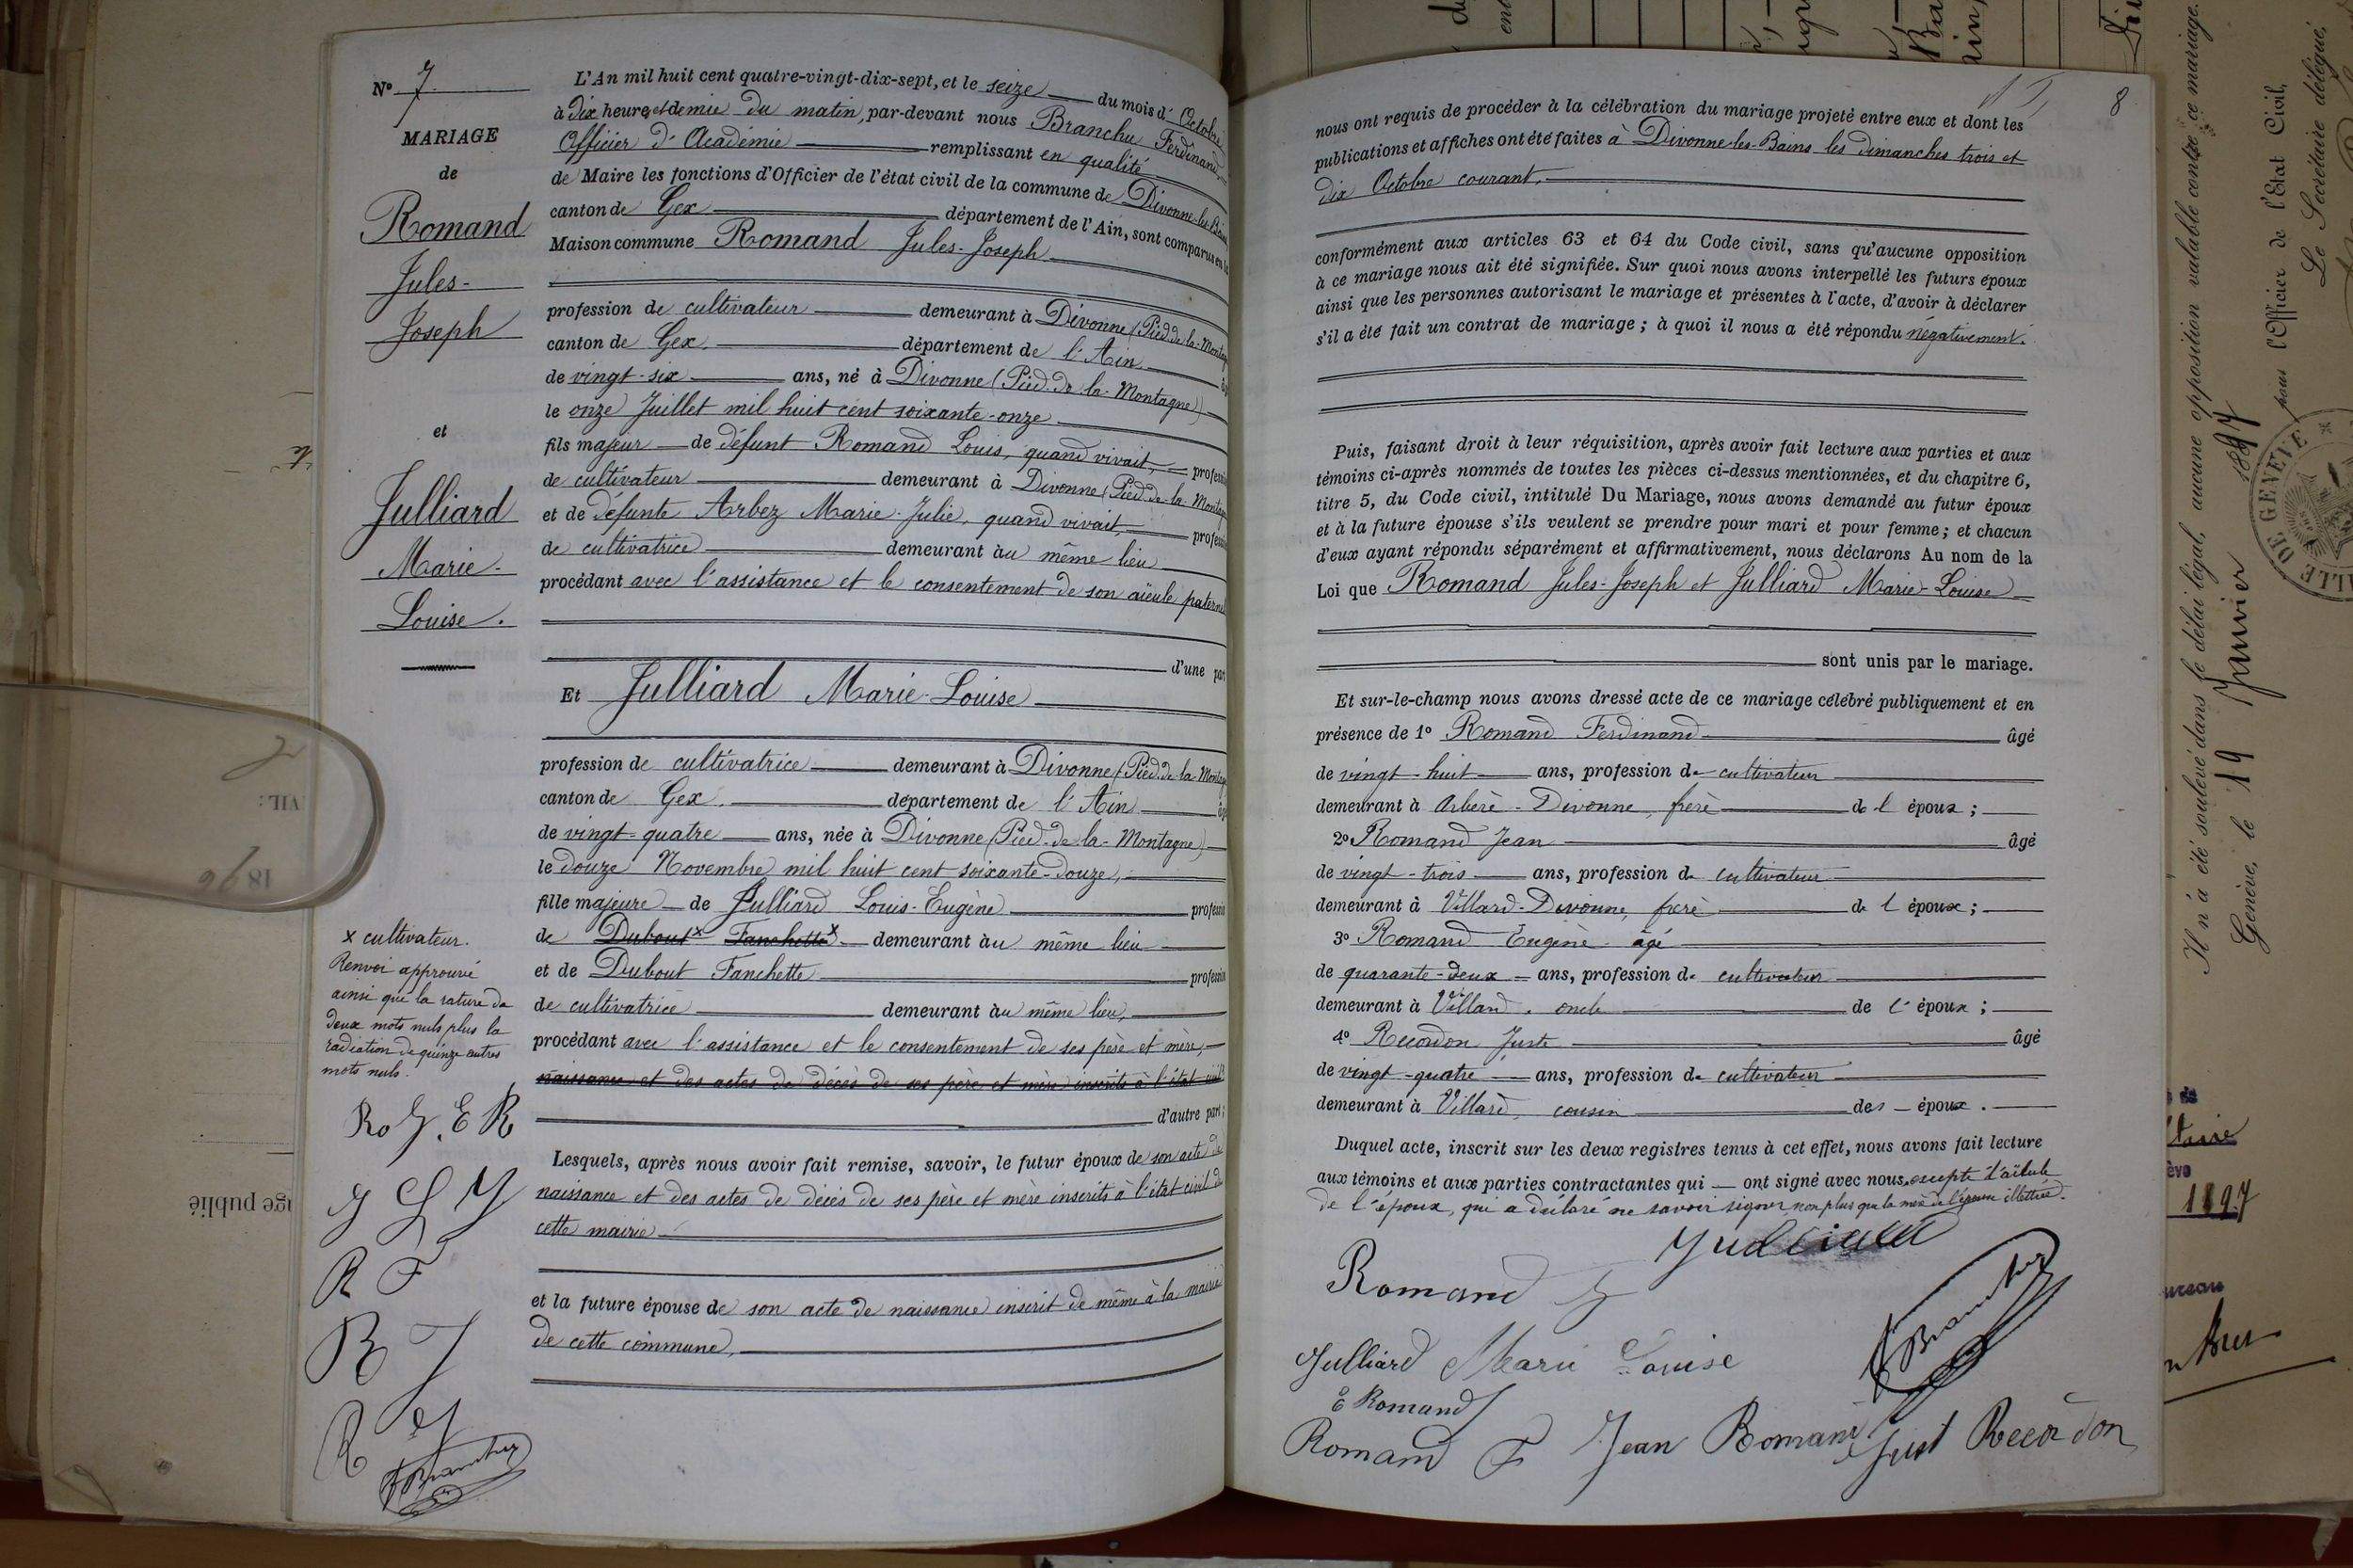 Nº 7
MARIAGE
de
Romand
Jules-
Joseph
et
Julliard
Marie-
Louise.
L'An mil huit cent quatre-vingt-dix-sept, et le seize du mois d' Octobre
à dix heures et demie du matin, par-devant nous Branchu Ferdinand,
Officier d'Académie remplissant en qualité
de Maire les fonctions d'Officier de l'état civil de la commune de Divonne-les-Bains
canton de Gex département de l'Ain, sont comparus en la
Maison commune Romand Jules-Joseph
profession de cultivateur demeurant à Divonne (Pied-de-la-Montag
canton de Gex. département de l'Ain
de vingt-six ans, né à Divonne (Pied-de-la-Montagne)
le onze Juillet mil huit cent soixante-onze
fils majeur de défunt Romand Louis, quand vivait, professi
de cultivateur demeurant à Divonne (Pied-de-la-Montag
et de défunte Arbez Marie-Julie, quand vivait, profess
de cultivatrice demeurant au même lieu
procédant avec l'assistance et le consentement de son aïeule patern
d'une par
Et Julliard Marie-Louise
profession de cultivatrice demeurant à Divonne (Pied-de-la-Montag
canton de Gex. département de l'Ain
de vingt-quatre ans, née à Divonne (Pied-de-la-Montagne)
le douze Novembre mil huit cent soixante-douze,
fille majeure de Julliard Louis-Eugène professi
de Dubout x Fanchette x demeurant au même lieu
et de Dubout Fanchette professi
de cultivatrice demeurant au même lieu,
procédant avec l'assistance et le consentement de ses père et mère,
naissance et des actes de décès de ses père et mère inscrits à l'état civil
d'autre part;
Lesquels, après nous avoir fait remise, savoir, le futur époux de son acte de
naissance et des actes de décès de ses père et mère inscrits à l'état civil de
cette mairie
et la future épouse de son acte de naissance inscrit de même à la mairie
de cette commune,
x cultivateur.
Renvoi approuvé
ainsi que la rature de
deux mots nuls plus la
radiation de quinze autres
mots nuls.
Ro J. E R
J L M
R F
R J
R J
F Branchu
8
nous ont requis de procéder à la célébration du mariage projeté entre eux et dont les
publications et affiches ont été faites à Divonne-les-Bains les dimanches trois et
dix Octobre courant.
conformément aux articles 63 et 64 du Code civil, sans qu'aucune opposition
à ce mariage nous ait été signifiée. Sur quoi nous avons interpellé les futurs époux
ainsi que les personnes autorisant le mariage et présentes à l'acte, d'avoir à déclarer
s'il a été fait un contrat de mariage; à quoi il nous a été répondu négativement.
Puis, faisant droit à leur réquisition, après avoir fait lecture aux parties et aux
témoins ci-après nommés de toutes les pièces ci-dessus mentionnées, et du chapitre 6,
titre 5, du Code civil, intitulé Du Mariage, nous avons demandé au futur époux
et à la future épouse s'ils veulent se prendre pour mari et pour femme; et chacun
d'eux ayant répondu séparément et affirmativement, nous déclarons Au nom de la
Loi que Romand Jules-Joseph et Julliard Marie-Louise
sont unis par le mariage.
Et sur-le-champ nous avons dressé acte de ce mariage célébré publiquement et en
présence de 1º Romand Ferdinand âgé
de vingt-huit ans, profession de cultivateur
demeurant à Arbère-Divonne, frère de l'époux;
2º Romand Jean âgé
de vingt-trois ans, profession de cultivateur
demeurant à Villard-Divonne, frère de l'époux;
3º Romand Eugène âgé
de quarante-deux ans, profession de cultivateur
demeurant à Villard, oncle de l'époux;
4º Recordon Juste âgé
de vingt-quatre ans, profession de cultivateur
demeurant à Villard, cousin des époux.
Duquel acte, inscrit sur les deux registres tenus à cet effet, nous avons fait lecture
aux témoins et aux parties contractantes qui ont signé avec nous, excepté l'aïeule
de l'époux, qui a déclaré ne savoir signer, non plus que la mère de l'épouse illettrée.
Romand J
Julliard
Julliard Marie Louise
F Branchu
E Romand
Romand F Jean Romand Just Recordon
Il n'a été soulevé dans le délai légal, aucune opposition valable contre ce mariage.
Genève, le 19 Janvier 1897
pour l'Officier de l'Etat Civil,
Le Secrétaire délégué,
VILLE DE GENEVE
1897